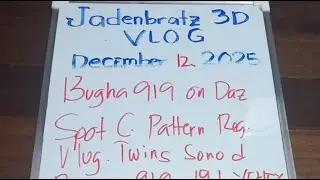 Jadenbratz 3D
VLOG
December 12, 2025
Bugha919 on Daz
Spot C. Pattern Reg.
Vlog. Twins Sono d
919